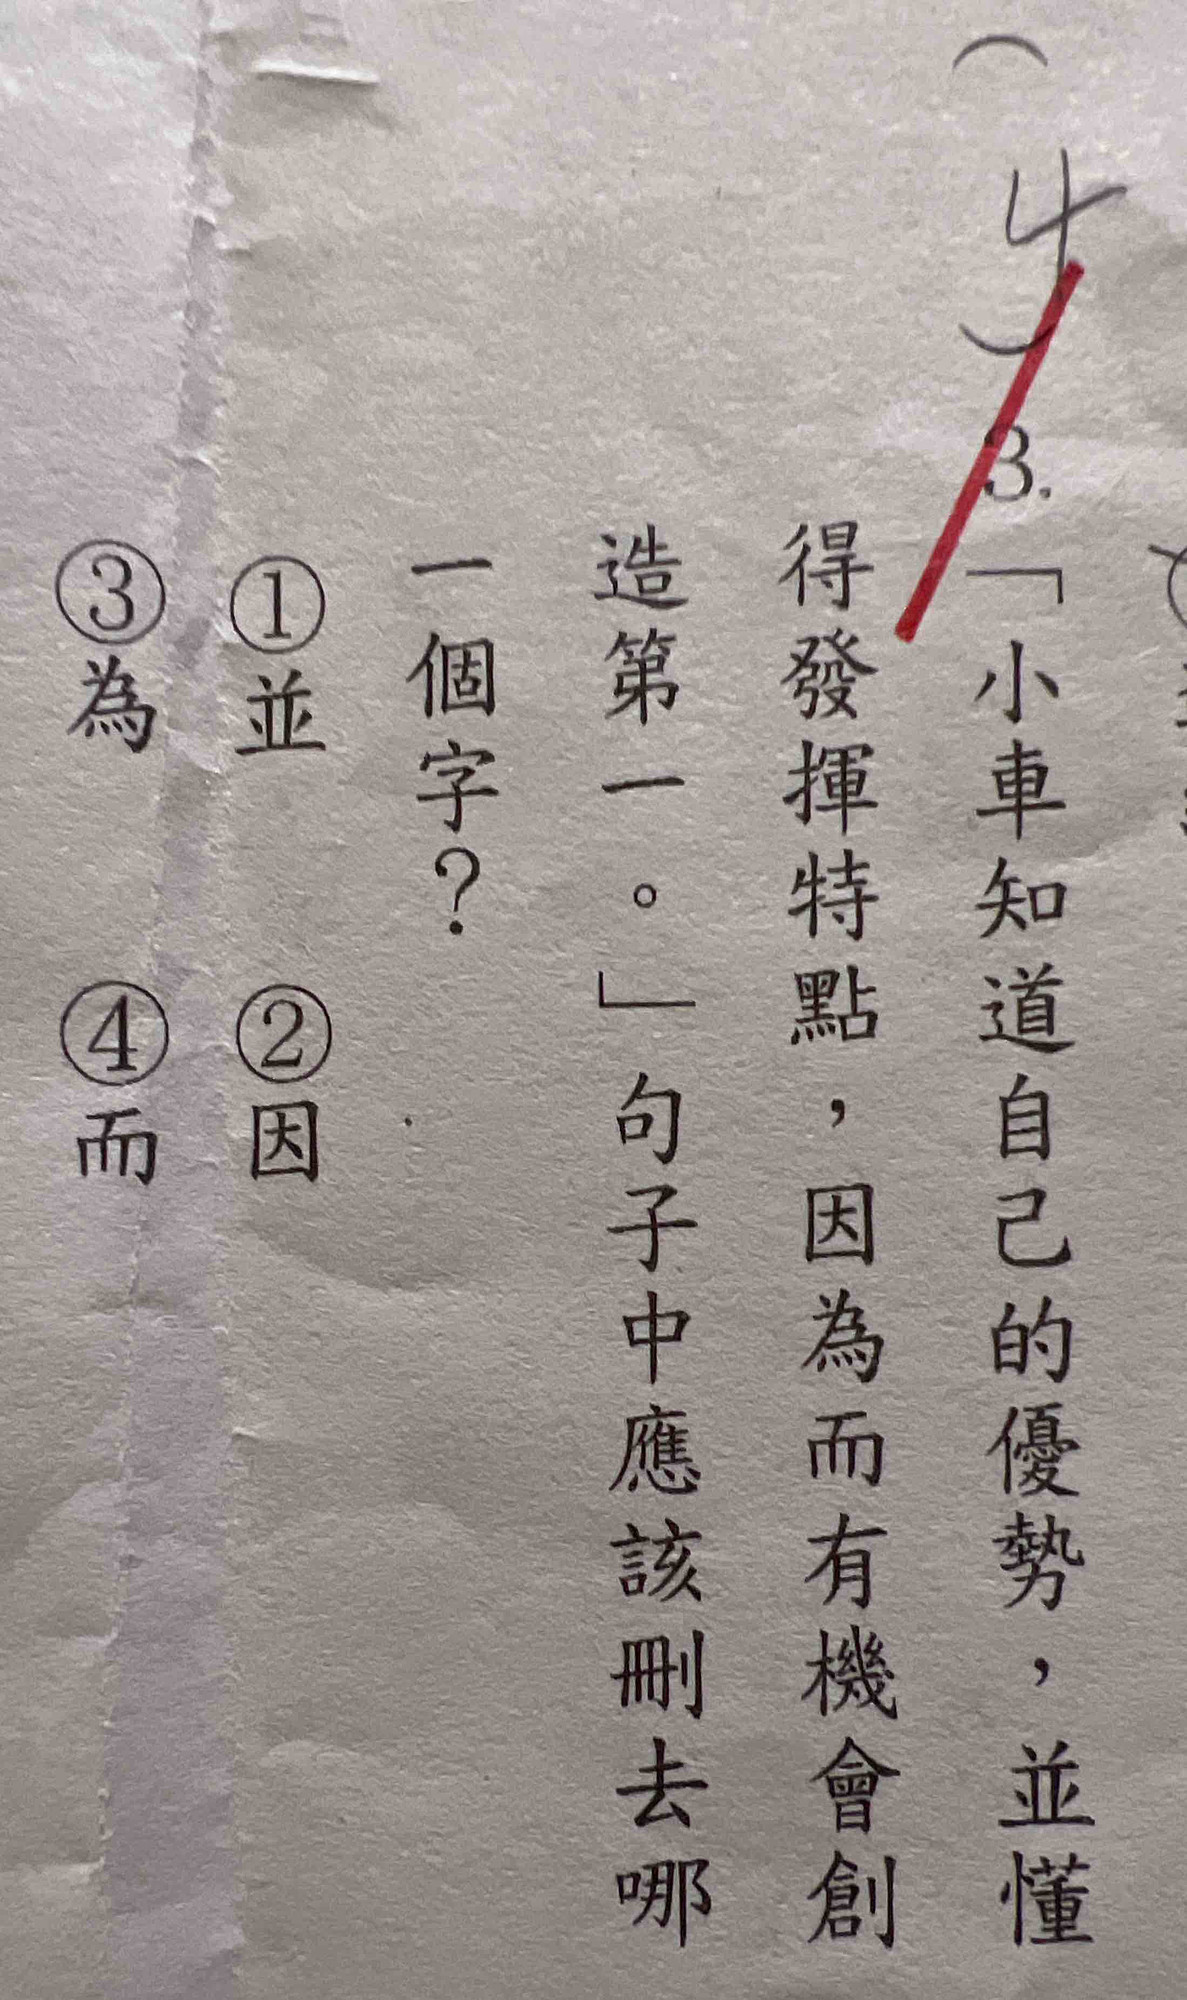 （4）3.「小車知道自己的優勢，並懂
得發揮特點，因為而有機會創
造第一。」句子中應該刪去哪
一個字？
①並　②因
③為　④而